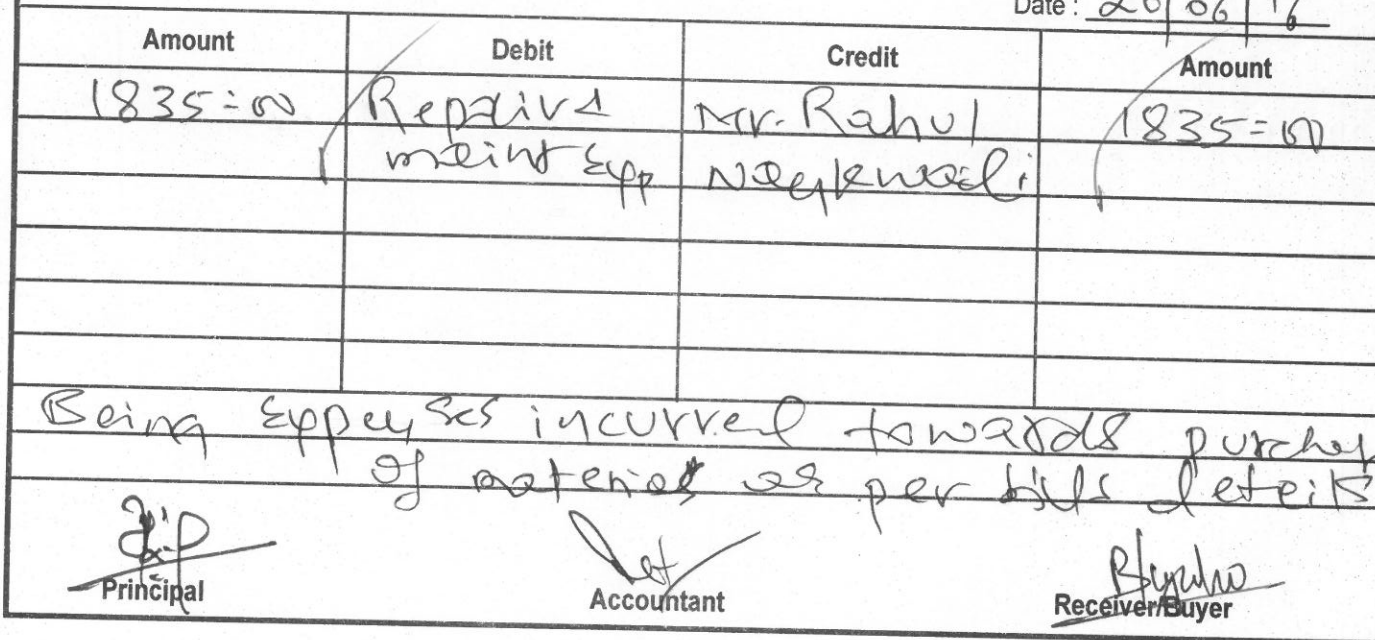 Date : 20/06/16
Amount Debit Credit Amount
1835=00 Repairs Mr. Rahul 1835=00
maint Exp Naykwadi
Being Expenses incurred towards purchase
of material as per bills details
Principal Accountant Receiver/Buyer